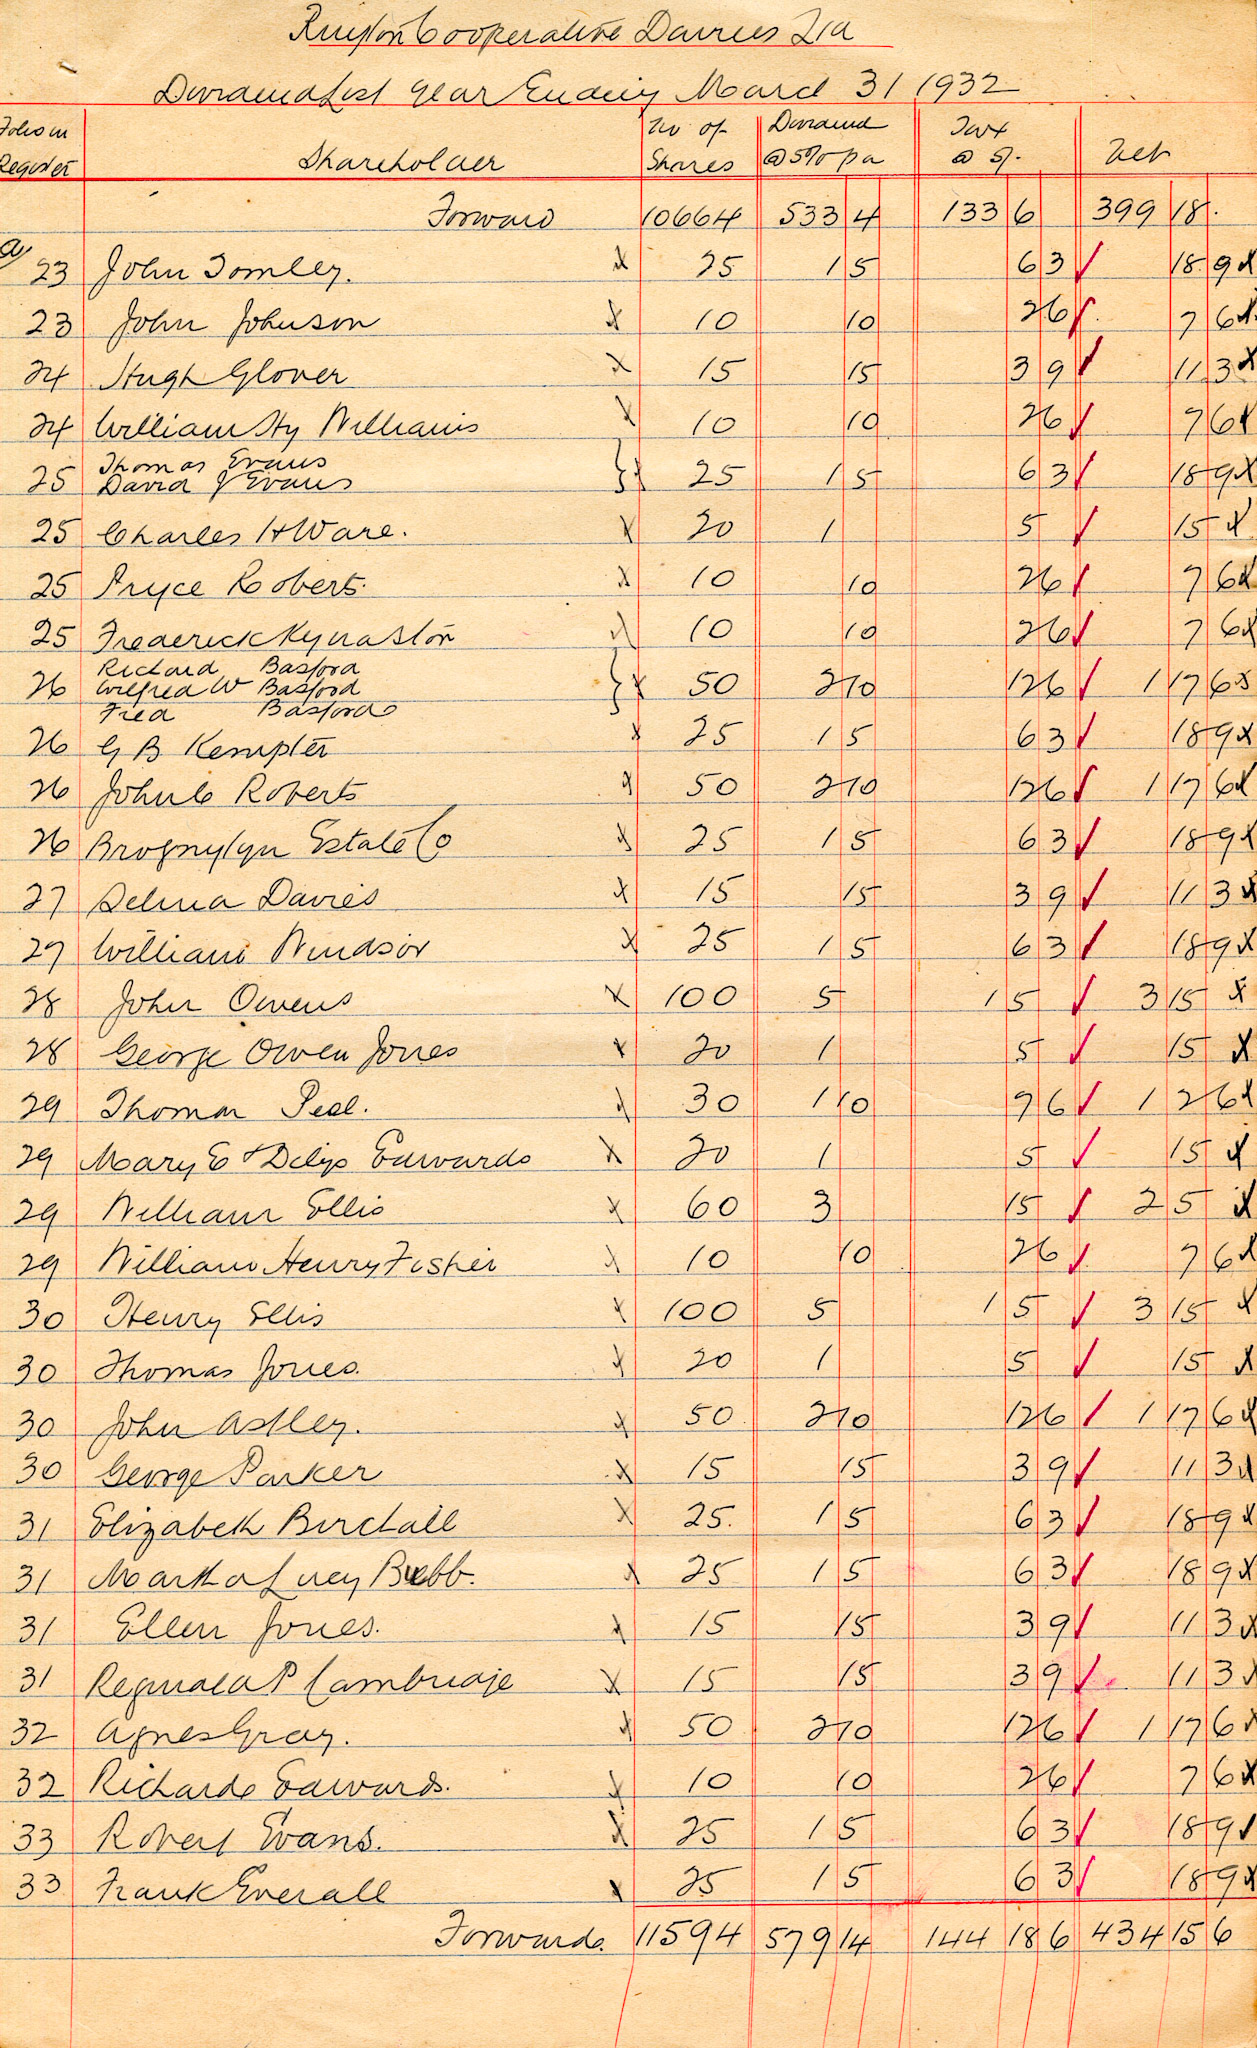 Ruyton Cooperative Dairies Ltd
Dividend List year Ending March 31 1932
Folio in Register Shareholder No of Shares Dividend @ 5% pa Tax @ 5/- Nett
Forward 10664 533 4 133 6 399 18.
23 John Tomley. x 25 1 5 6 3 ✓ 18 9 x
23 John Johnson x 10 10 2 6 ✓ 7 6 x
24 Hugh Glover x 15 15 3 9 ✓ 11 3 x
24 William Hy Williams x 10 10 2 6 ✓ 7 6 x
Thomas Evans
25 David J Evans } x 25 1 5 6 3 ✓ 18 9 x
25 Charles H Ware. x 20 1 5 ✓ 15 x
25 Pryce Roberts. x 10 10 2 6 ✓ 7 6 x
25 Frederick Kynaston x 10 10 2 6 ✓ 7 6 x
Richard Basford
26 Wilfred W Basford } x 50 2 10 12 6 ✓ 1 17 6 x
Fred Basford
26 G B Kempter x 25 1 5 6 3 ✓ 18 9 x
26 John C Roberts x 50 2 10 12 6 ✓ 1 17 6 x
26 Brogyntyn Estate Co x 25 1 5 6 3 ✓ 18 9 x
27 Selina Davies x 15 15 3 9 ✓ 11 3 x
27 William Windsor x 25 1 5 6 3 ✓ 18 9 x
28 John Owens x 100 5 1 5 ✓ 3 15 x
28 George Owen Jones x 20 1 5 ✓ 15 x
29 Thomas Peel. x 30 1 10 7 6 ✓ 1 2 6 x
29 Mary E & Dilys Edwards x 20 1 5 ✓ 15 x
29 William Ellis x 60 3 15 ✓ 2 5 x
29 William Henry Fisher x 10 10 2 6 ✓ 7 6 x
30 Henry Ellis x 100 5 1 5 ✓ 3 15 x
30 Thomas Jones. x 20 1 5 ✓ 15 x
30 John Astley. x 50 2 10 12 6 ✓ 1 17 6 x
30 George Parker x 15 15 3 9 ✓ 11 3 x
31 Elizabeth Birchall x 25. 1 5 6 3 ✓ 18 9 x
31 Martha Lucy Bebb. x 25 1 5 6 3 ✓ 18 9 x
31 Ellen Jones. x 15 15 3 9 ✓ 11 3 x
31 Reginald P Cambridge x 15 15 3 9 ✓ 11 3 x
32 Agnes Gray. x 50 2 10 12 6 ✓ 1 17 6 x
32 Richard Edwards. x 10 10 2 6 ✓ 7 6 x
33 Robert Evans. x 25 1 5 6 3 ✓ 18 9 x
33 Frank Everall x 25 1 5 6 3 ✓ 18 9 x
Forward. 11594 579 14 144 18 6 434 15 6